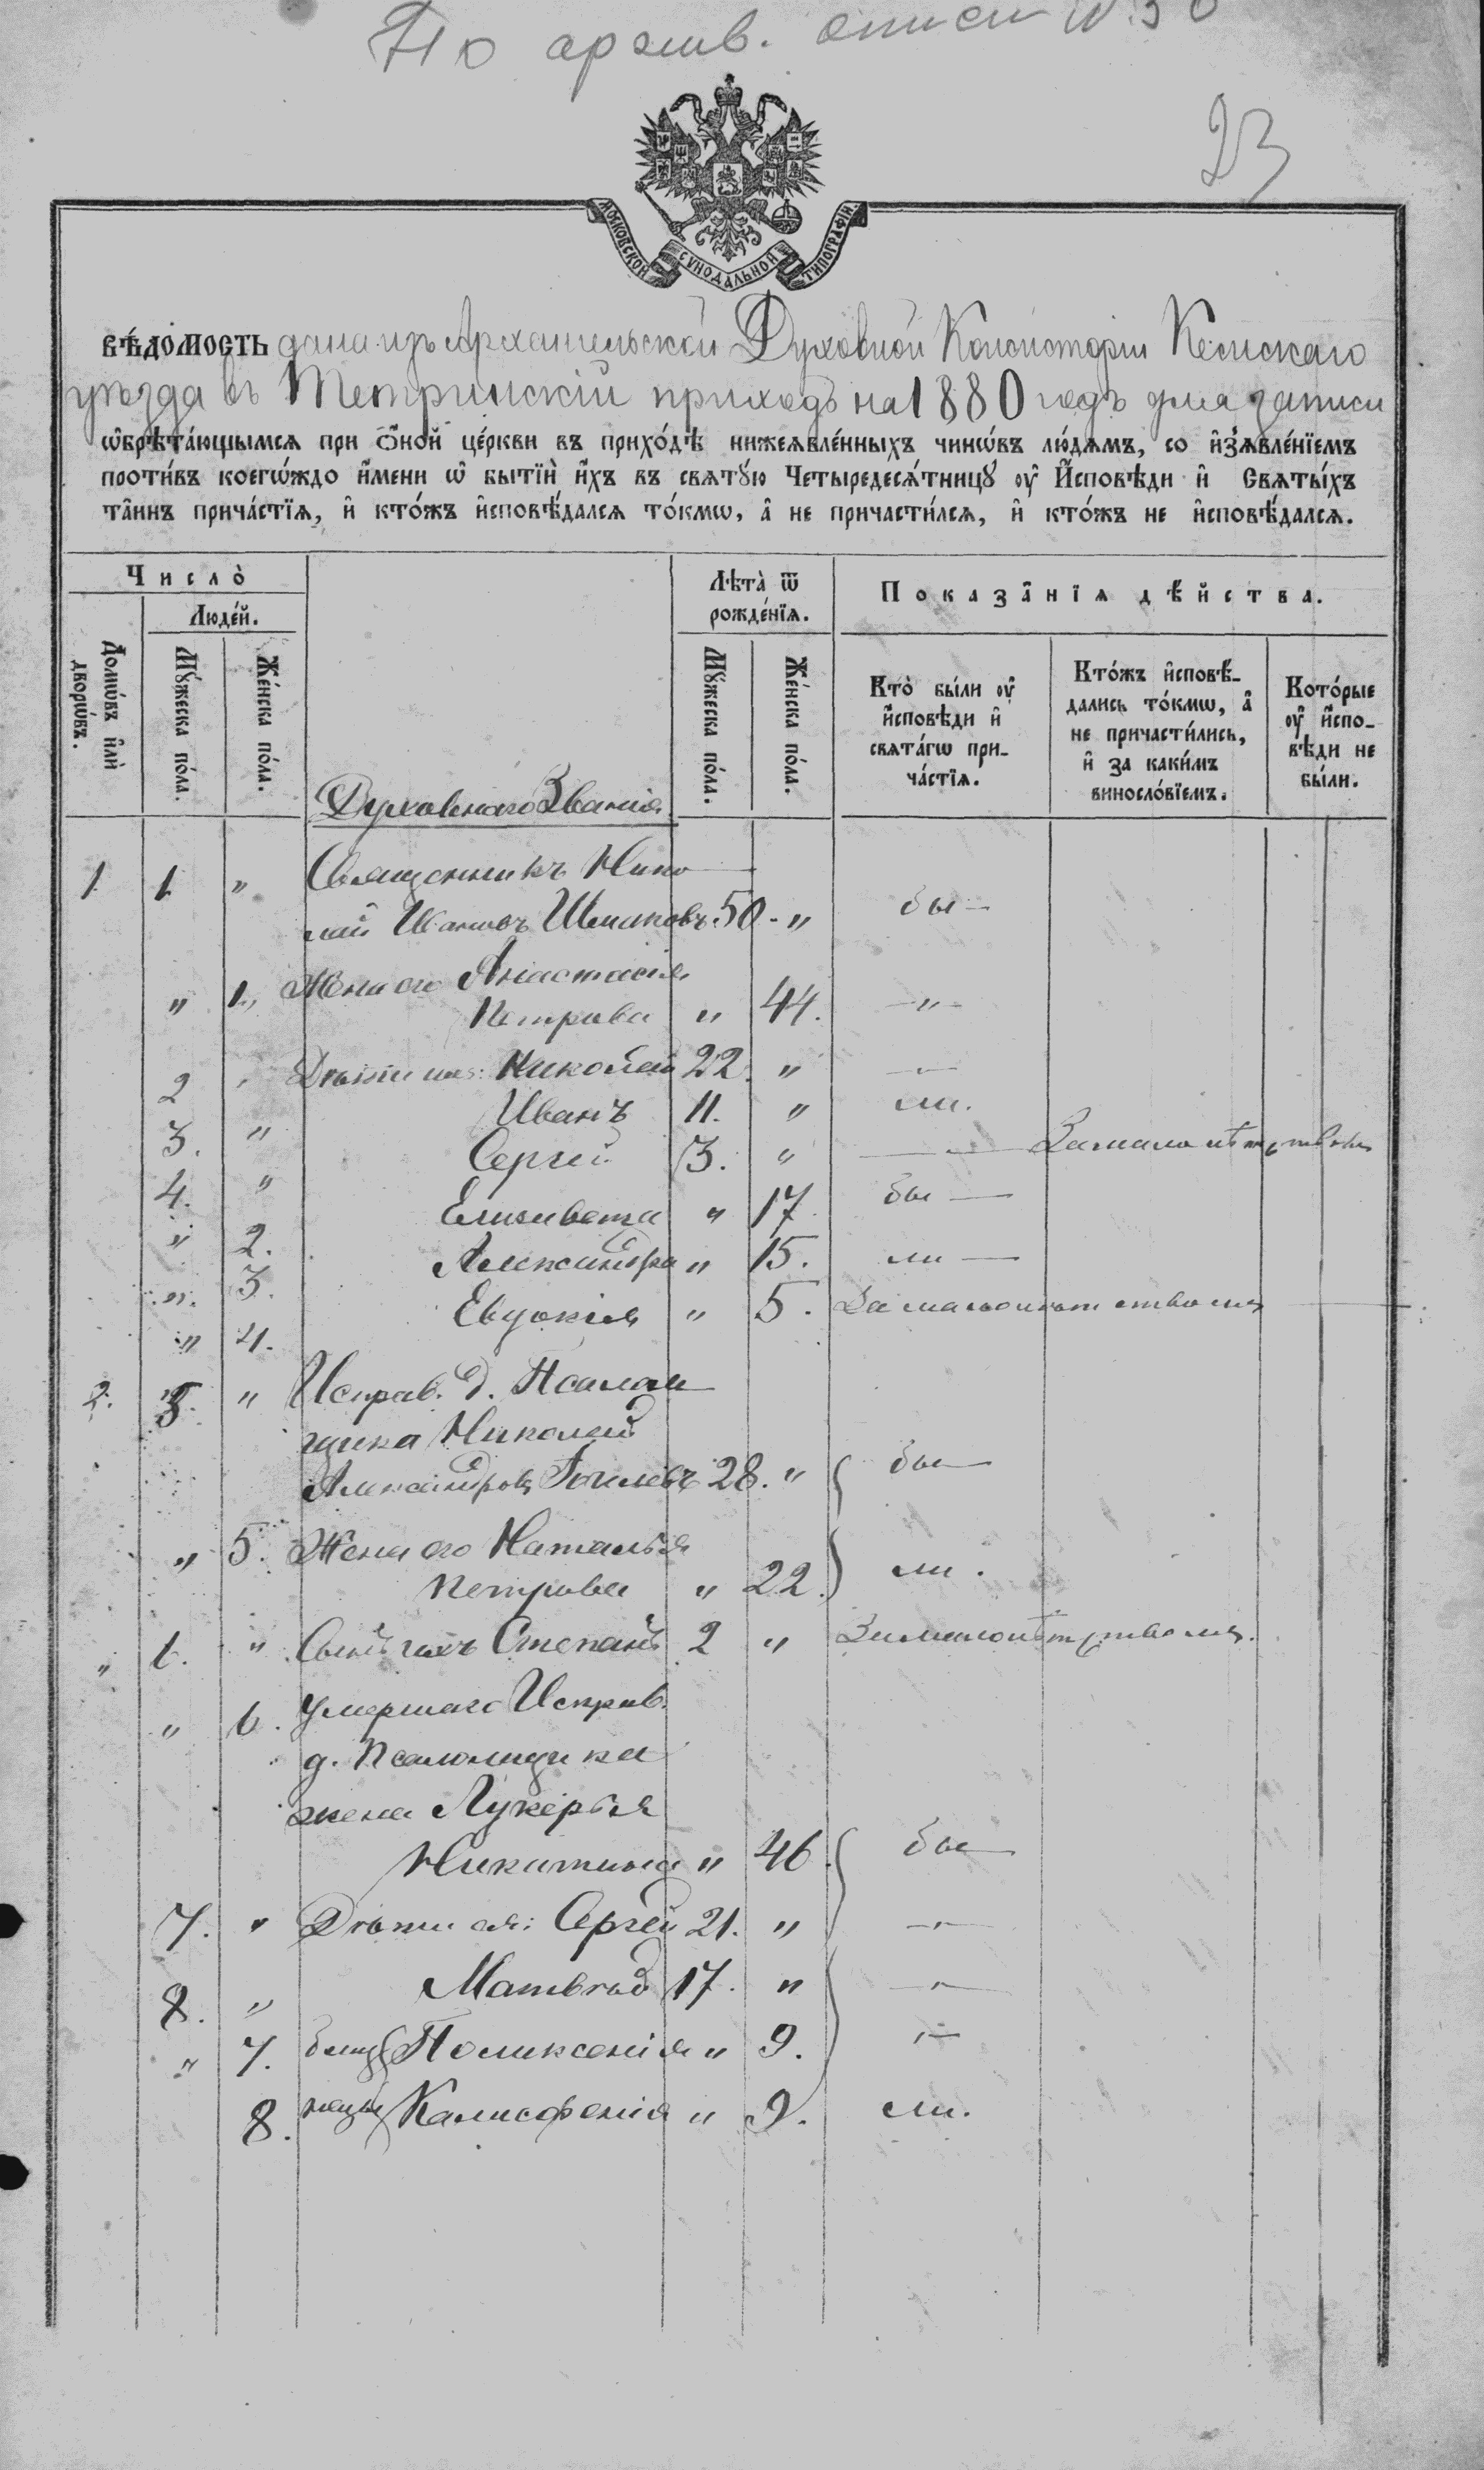 По архив. описи №
23
МОСКОВСКОЙ СѴНОДАЛЬНОЙ ТИПОГРАФІИ.
ВѢ́ДОМОСТЬ дана изъ Архангельской Духовной Консисторіи Кемскаго
уѣзда въ Тетринскій приходъ на 1880 годъ для записи
ѡ҆брѣта́ющымся при ѻ҆́ной це́ркви въ прихо́дѣ нижеявле́нныхъ чинѡ́въ лю́дямъ, со и҆з̾явле́нїемъ
проти́въ коегѡ́ждо и҆́мени ѡ҆ бытїѝ и҆́хъ въ святꙋ́ю Четыредеся́тницꙋ ᲂу҆ И҆сповѣди и҆ Святы́хъ
та̂инъ прича́стїя, и҆ кто́жъ и҆сповѣ́дался то́кмѡ, а҆ не причасти́лся, и҆ кто́жъ не и҆сповѣ́дался.
Число̀
Люде́й.
Лѣта̀ ѿ
рожде́нїя.
Показа̂нїя дѣ́йства.
Домѡ́въ и҆лѝ
дворѡ́въ.
Мꙋ́жеска по́ла.
Же́нска по́ла.
Мꙋ́жеска по́ла.
Же́нска по́ла.
Кто̀ бы́ли ᲂу҆
и҆́сповѣди и҆
свята́гѡ при-
ча́стїя.
Кто́жъ и҆сповѣ́-
дались то́кмѡ, а҆
не причасти́лись,
и҆ за каки́мъ
виносло́вїемъ.
Кото́рые
ᲂу҆ и҆́спо-
вѣди не
бы́ли.
Духовнаго Званія
1 1 " Священникъ Нико
лай Шмаковъ 50 - " бы -
" 1. Жена его Анастасія
Петрова " 44. - " -
2 " Дѣти ихъ: Николай 22. " -
3. " Иванъ 11. " ли.
4. " Сергій 3. " — За малолѣтствомъ
" 2. Елизавета " 17. бы —
" 3. Александра " 15. ли —
" 4. Евдокія " 5. За малолѣтствомъ
2. 5. " Исправ. д. Псалом
щика Николай
Александровъ 28. " бы —
" 5. Жена его Наталья
Петрова " 22. ли.
" 6. " Сынъ ихъ Степанъ 2 " За малолѣтствомъ.
" 6. Умершаго Исправ.
д. Псаломщика
жена Лукерья
Никитина " 46. бы —
7. " Дѣти ея: Сергѣй 21. " - " -
8. " Матвѣй 17. " - " -
" 7. близ Поликсенія " 9. - " -
8. нецы Калисфенія " 9. ли.